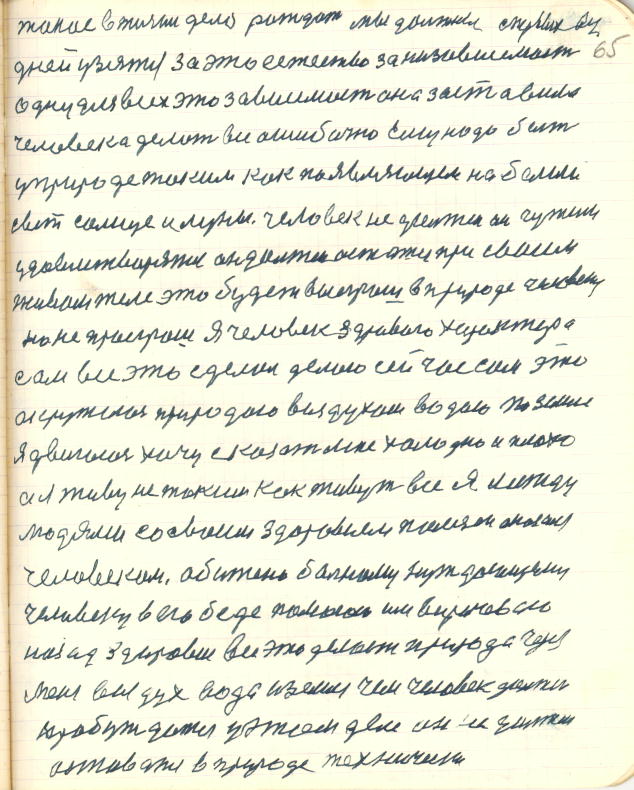 такое в жизни дело рождат мы должны с первых
65
дней узяти за это естество за низависемость
одну для всех это зависемост она заставила
человека делат все ошибочно Ему надо быть
у природе таким как появляющем на белый
свет солнце и луны. человек не должен он чужим
удовлитворяти он должен остатци при своем
живом теле это будет выегрош в природе человеку
но не проегрош Я человек здравого характера
сам все это сделал делаю сейчас сам это
окружался природаю воздухом водою по земле
Я двигался хочу сказат мне холодно и плохо
а я живу не таким как живут все Я между
людями со своим здоровием
человеком. обижено больному нуждающему
человеку в его беде помогаю им ворочаваю
назад здоровие все это делает природа через
меня воздух вода и земля чем человек должен
пробуждатся у этом деле он не должен
оставатя в природе технически